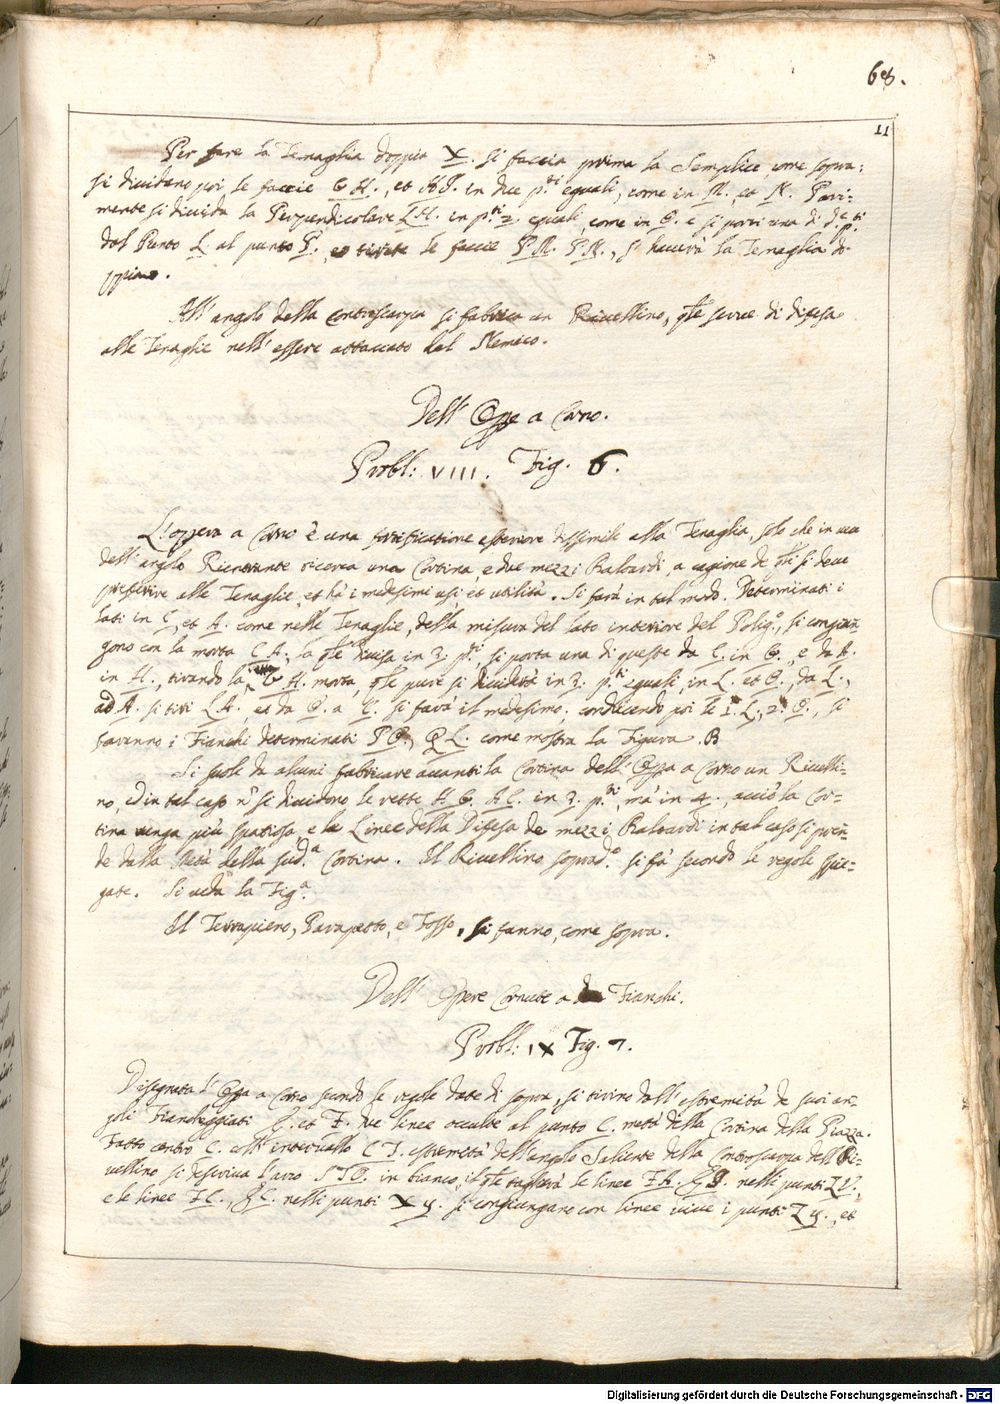 68.
11
Per fare la Tenaglia doppia X. si faccia prima la Semplice come sopra;
si dividano poi le faccie G H., et H I. in due p.ti eguali, come in M. et N. Pari-
mente si divida la Perpendicolare L H. in p.ti 2. eguali, come in O. e si porti una di d.e p.ti
dal Punto L. al punto P. et tirate le faccie P M. P N., si haverà la Tenaglia do-
ppia.
All' angolo della Controscarpa si fabrica un Rivellino, q̃le serve di difesa
alle Tenaglie nell' essere attaccato dal Nemico.
Dell' Opp.a a Corno.
Probl: VIII. Fig. 6.
L'oppera a Corno è una fortificatione esteriore dissimile alla Tenaglia, solo che in vece
dell' angolo Rientrante ricerca una Cortina, e due mezzi Baloardi, a cagione de q̃li si deve
preferire alle Tenaglie, et hà i medesimi usi et utilità. Si farà in tal modo. Determinati i
lati in C, et A. come nelle Tenaglie, della misura del lato interiore del Polig.o, si congiun-
gono con la morta C A., la q̃le divisa in 3. p.ti, si porta una di queste da C. in G., e da A.
in H., tirando la G H. morta, q̃le pure si dividerà in 3. p.ti eguali, in L. et O., da L.,
ad A. si tiri L A., et da O. a C. si farà il medesimo; conducendo poi le 1. L., 2. O., si
faranno i Fianchi determinati P O., Q L. come mostra la Figura. B
Si suole da alcuni fabricare avanti la Cortina dell' Oppa a Corno un Rivelli-
no, ed in tal caso ñ si dividono le rette A G. A C. in 3. p.ti, mà in 4., acciò la Cor-
tina venga più spatiosa, e la Linee della Difesa de mezzi Baloardi in tal caso si pren-
de dalla Metà della sud.a Cortina. Il Rivellino soprad.o si fà secondo le regole spie-
gate. Si veda la Fig.a
Il Terrapieno, Parapetto, e Fosso, si fanno, come sopra.
Dell' Opere Cornute a Fianchi.
Probl: IX Fig. 7.
Disegnata l'Oppa a Corno secondo le regole date di sopra, si tirino dall' estremità de suoi an-
goli Fiancheggiati G. et F. due linee occulte al punto C. metà della Cortina della Piazza.
Fatto centro C. coll' intervallo C I. estremità dell' angolo Saliente della Controscarpa dell Ri-
vellino si descriva l'arco S T O. in bianco, il q̃le taglierà le linee F A. G B. nelli punti Z V.,
e le linee F C., G C. nelli punti X y. si congiungano con linee vive i punti Z y., et